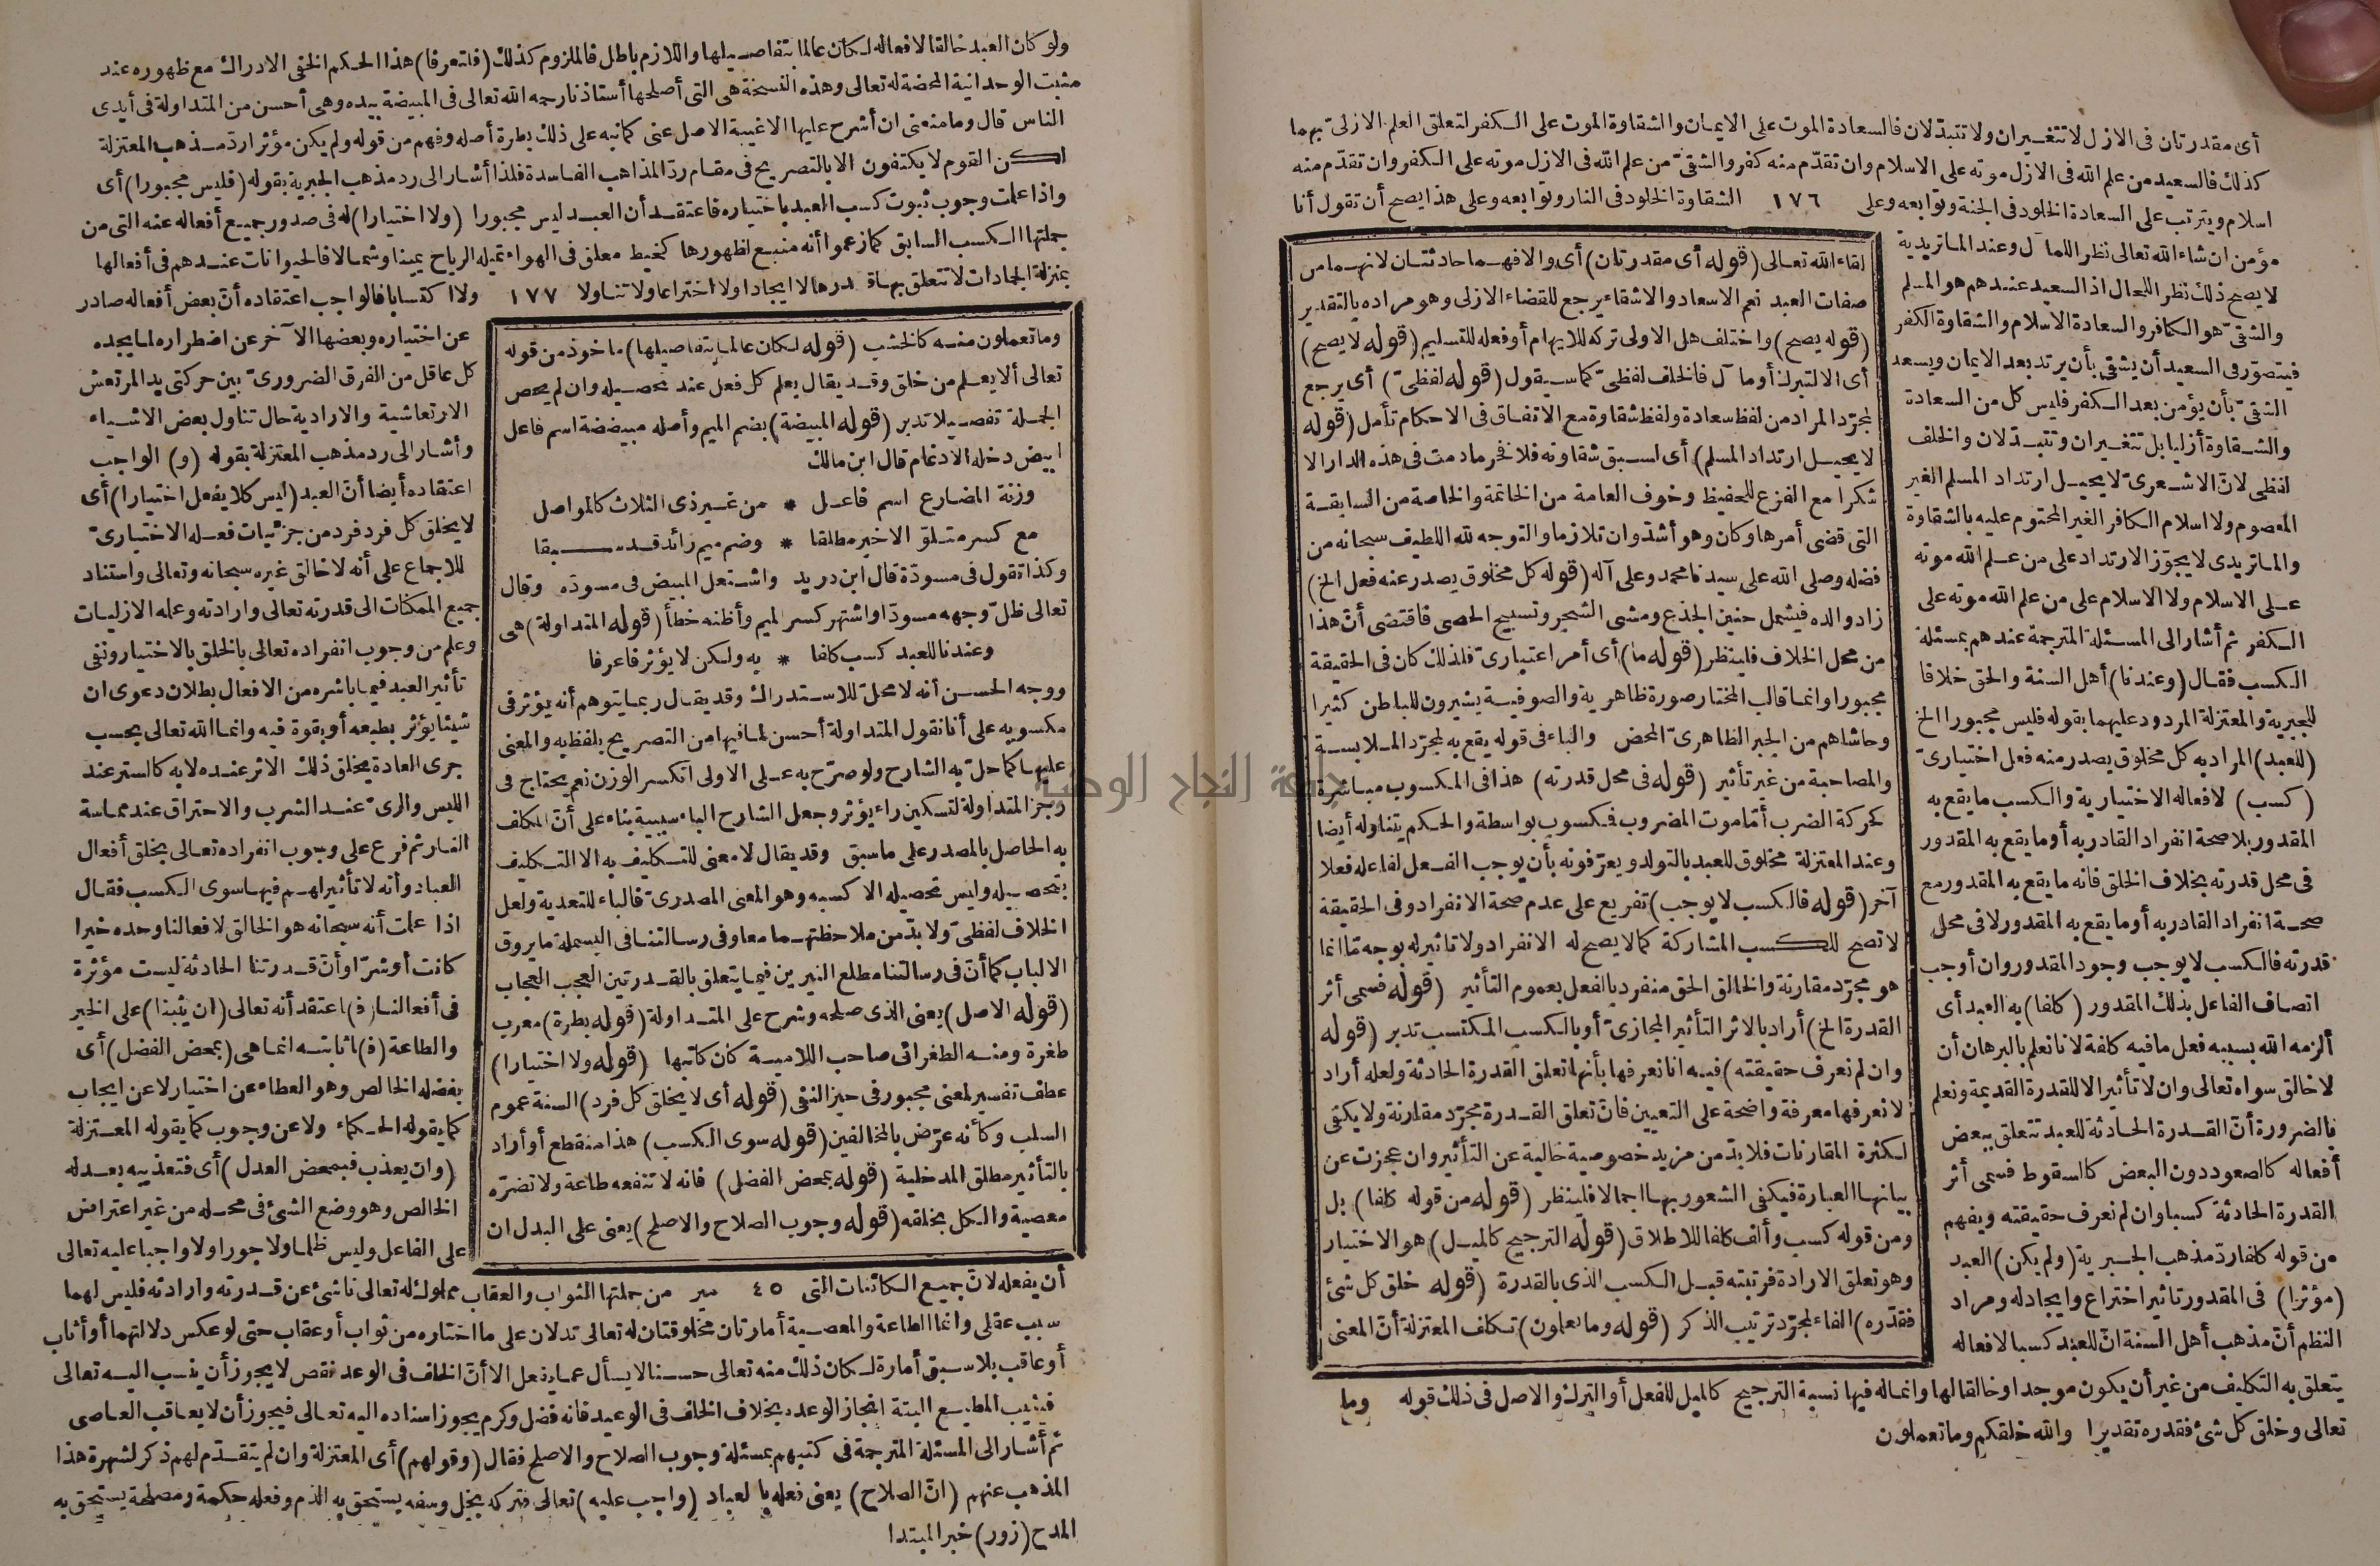 أى مقدرتان فى الازل لا تتغيران ولا تتبدلان فالسعادة الموت على الايمان والشقاوة الموت على الكفر لتعلق العلم الازلى بهما
كذلك فالسعيد من علم الله فى الازل موته على الاسلام وان تقدّم منه كفر والشقىّ من علم الله فى الازل موته على الكفر وان تقدّم منه
اسلام ويترتب على السعادة الخلود فى الجنة وتوابعه وعلى ١٧٦ الشقاوة الخلود فى النار وتوابعه وعلى هذا يصح أن تقول أنا
مؤمن ان شاء الله تعالى نظرا للمآل وعند الماتريدية
لا يصح ذلك نظرا للحال اذ السعيد عندهم هو المسلم
والشقىّ هو الكافر والسعادة الاسلام والشقاوة الكفر
فيتصوّر فى السعيد أن يشقى بأن يرتد بعد الايمان ويسعد
الشقىّ بأن يؤمن بعد الكفر فليس كل من السعادة
والشقاوة أزليا بل تتغيران وتتبدلان والخلف
لفظى لانّ الاشعرىّ لا يحيل ارتداد المسلم الغير
المعصوم ولا اسلام الكافر الغير المحتوم عليه بالشقاوة
والماتريدى لا يجوّز الارتداد على من علم الله موته
على الاسلام ولا الاسلام على من علم الله موته على
الكفر ثم أشار الى المسئلة المترجمة عندهم بمسئلة
الكسب فقال (وعندنا) أهل السنة والحق خلافا
للجبرية والمعتزلة المردود عليهما بقوله فليس مجبورا الخ
(للعبد) المراد به كل مخلوق يصدر منه فعل اختيارىّ
(كسب) لافعاله الاختيارية والكسب ما يقع به
المقدور بلا صحة انفراد القادر به أو ما يقع به المقدور
فى محل قدرته بخلاف الخلق فانه ما يقع به المقدور مع
صحة انفراد القادر به أو ما يقع به المقدور لا فى محل
قدرته فالكسب لا يوجب وجود المقدور وان أوجب
اتصاف الفاعل بذلك المقدور (كلفا) به العبد أى
ألزمه الله بسببه فعل ما فيه كلفة لانا نعلم بالبرهان أن
لا خالق سواه تعالى وان لا تأثير الا للقدرة القديمة ونعلم
بالضرورة أنّ القدرة الحادثة للعبد تتعلق ببعض
أفعاله كالصعود دون البعض كالسقوط فسمى أثر
القدرة الحادثة كسبا وان لم نعرف حقيقته ويفهم
من قوله كلفا ردّ مذهب الجبرية (ولم يكن) العبد
(مؤثرا) فى المقدور تاثير اختراع وايجاد له ومراد
النظم أنّ مذهب أهل السنة ان للعبد كسبا لافعاله
يتعلق به التكليف من غير أن يكون موجدا وخالقا لها وانما له فيها نسبة الترجيح كالميل للفعل أو الترك والاصل فى ذلك قوله وما
تعالى وخلق كل شئ فقدره تقديرا والله خلقكم وما تعملون
لقاء الله تعالى (قوله أى مقدرتان) أى والا فهما حادثتان لانهما من
صفات العبد نعم الاسعاد والاشقاء يرجع للقضاء الازلى وهو مراده بالتقدير
(قوله يصح) واختلف هل الاولى تركه للايهام أو فعله للتسليم (قوله لا يصح)
أى الا لتبرك أو مآل فالخلف لفظىّ كما سيقول (قوله لفظىّ) أى يرجع
لمجرّد المراد من لفظ سعادة ولفظ شقاوة مع الاتفاق فى الاحكام تأمل (قوله
لا يحيل ارتداد المسلم) أى لسبق شقاوته فلا فخر ما دمت فى هذه الدار الا
شكرا مع الفزع للحفيظ وخوف العامة من الخاتمة والخاصة من السابقة
التى قضى أمرها وكان وهو أشدّ وان تلازما والتوجه لله اللطيف سبحانه من
فضله وصلى الله على سيدنا محمد وعلى آله (قوله كل مخلوق يصدر عنه فعل الخ)
زاد والده فيشمل حنين الجذع ومشى الشجر وتسبيح الحصى فاقتضى أنّ هذا
من محل الخلاف فلينظر (قوله ما) أى أمر اعتبارىّ فلذلك كان فى الحقيقة
مجبورا وانما قالب المختار صورة ظاهرية والصوفية يشيرون للباطن كثيرا
وحاشاهم من الجبر الظاهرىّ المحض والباء فى قوله يقع به لمجرّد الملابسة
والمصاحبة من غير تأثير (قوله فى محل قدرته) هذا فى المكسوب مباشرة
كحركة الضرب أمّا موت المضروب فكسوب بواسطة والحكم يتناوله أيضا
وعند المعتزلة مخلوق للعبد بالتولد ويعرّفونه بأن يوجب الفعل لفاعله فعلا
آخر (قوله فالكسب لا يوجب) تفريع على عدم صحة الانفراد وفى الحقيقة
لا تصح للكسب المشاركة كما لا يصح له الانفراد ولا تاثير له بوجه مّا انما
هو مجرّد مقارنة والخالق الحق منفرد بالفعل بعموم التأثير (قوله فسمى أثر
القدرة الخ) أراد بالاثر التأثير المجازىّ أو بالكسب المكتسب تدبر (قوله
وان لم نعرف حقيقته) فيه انا نعرفها بأنها تعلق القدرة الحادثة ولعله أراد
لا نعرفها معرفة واضحة على التعيين فانّ تعلق القدرة مجرّد مقارنة ولا يكفى
لكثرة المقارنات فلا بدّ من مزيد خصوصية خالية عن التأثير وان عجزت عن
بيانها العبارة فيكفى الشعور بها اجمالا فلينظر (قوله من قوله كلفا) بل
ومن قوله كسب وألف كلفا للاطلاق (قوله الترجيح كالميل) هو الاختيار
وهو تعلق الارادة فرتبته قبل الكسب الذى بالقدرة (قوله خلق كل شئ
فقدّره) الفاء لمجرّد ترتيب الذكر (قوله وما تعملون) تكلف المعتزلة أنّ المعنى
ولو كان العبد خالقا لافعاله لكان عالما بتفاصيلها واللازم باطل فالملزوم كذلك (فلتعرفا) هذا الحكم الخفى الادراك مع ظهوره عند
مثبت الوحدانية المحضة له تعالى وهذه النسخة هى التى أصلحها أستاذنا رحمه الله تعالى فى المبيضة بيده وهى أحسن من المتداولة فى أيدى
الناس قال وما منعنى ان أشرح عليها الا غيبة الاصل عنى كما نبه على ذلك بطرة أصله وفهم من قوله ولم يكن مؤثرا ردّ مذهب المعتزلة
لكن القوم لا يكتفون الا بالتصريح فى مقام ردّ المذاهب الفاسدة فلذا أشار الى رد مذهب الجبرية بقوله (فليس مجبورا) أى
واذا علمت وجوب ثبوت كسب العبد باختياره فاعتقد أن العبد ليس مجبورا (ولا اختيارا) له فى صدور جميع أفعاله عنه التى من
جملتها الكسب السابق كما زعموا أنه منبع لظهورها كخيط معلق فى الهواء تميله الرياح يمينا وشمالا فالحيوانات عندهم فى أفعالها
بمنزلة الجمادات لا تتعلق بها قدرها لا ايجادا ولا اختراعا ولا تناولا ١٧٧ ولا اكتسابا فالواجب اعتقاده أنّ بعض أفعاله صادر
عن اختياره وبعضها الآخر عن اضطراره لما يجده
كل عاقل من الفرق الضرورىّ بين حركتى يد المرتعش
الارتعاشية والارادية حال تناول بعض الاشياء
وأشار الى رد مذهب المعتزلة بقوله (و) الواجب
اعتقاده أيضا أنّ العبد (ليس كلا يفعل اختيارا) أى
لا يخلق كل فرد فرد من جزئيات فعله الاختيارىّ
للاجماع على أنه لا خالق غيره سبحانه وتعالى واستناد
جميع الممكنات الى قدرته تعالى وارادته وعلمه الازليات
وعلم من وجوب انفراده تعالى بالخلق بالاختيار ونفى
تأثير العبد فيما باشره من الافعال بطلان دعوى ان
شيئا يؤثر بطبعه أو بقوة فيه وانما الله تعالى بحسب
جرى العادة يخلق ذلك الاثر عنده لا به كالستر عند
اللبس والرىّ عند الشرب والاحتراق عند مماسة
النار ثم فرع على وجوب انفراده تعالى بخلق أفعال
العباد وأنه لا تأثير لهم فيها سوى الكسب فقال
اذا علمت أنه سبحانه هو الخالق لافعالنا وحده خيرا
كانت أو شرّا وأنّ قدرتنا الحادثة ليست مؤثرة
فى أفعالنا (ف) اعتقد أنه تعالى (ان يثبنا) على الخير
والطاعة (ف) اثابته انما هى (بمحض الفضل) أى
بفضله الخالص وهو العطاء عن اختيار لا عن ايجاب
كما يقوله الحكماء ولا عن وجوب كما يقوله المعتزلة
(وان يعذب فبمحض العدل) أى فتعذيبه بعدله
الخالص وهو وضع الشئ فى محله من غير اعتراض
على الفاعل وليس ظلما ولا جورا ولا واجبا عليه تعالى
وما تعملون منه كالخشب (قوله لكان عالما بتفاصيلها) ماخوذ من قوله
تعالى ألا يعلم من خلق وقد يقال يعلم كل فعل عند تحصيله وان لم يحص
الجملة تفصيلا تدبر (قوله المبيضة) بضم الميم وأصله مبيضضة اسم فاعل
ابيض دخله الادغام قال ابن مالك
وزنة المضارع اسم فاعل * من غير ذى الثلاث كالمواصل
مع كسر متلوّ الاخير مطلقا * وضم ميم زائد قد سبقا
وكذا تقول فى مسودّة قال ابن دريد واشتعل المبيض فى مسودّه وقال
تعالى ظلّ وجهه مسودّا واشتهر كسر لميم وأظنه خطأ (قوله المتداولة) هى
وعندنا للعبد كسب كلفا * به ولكن لا يؤثر فاعرفا
ووجه الحسن أنه لا محلّ للاستدراك وقد يقال ربما يتوهم أنه يؤثر فى
مكسوبه على أنا نقول المتداولة أحسن لما فيها من التصريح بلفظ به والمعنى
عليها كما حلّ به الشارح ولو صرّح به على الاولى انكسر الوزن نعم يحتاج فى
رجز المتداولة لتسكين راء يؤثر وجعل الشارح الباء سببية بناء على أنّ المكلف
به الحاصل بالمصدر على ما سبق وقد يقال لا معنى للتكليف به الا التكليف
بتحصيله وليس تحصيله الا كسبه وهو المعنى المصدرىّ فالباء للتعدية ولعل
الخلاف لفظىّ ولا بدّ من ملاحظتهما معا وفى رسالتنا فى البسملة ما يروق
الالباب كما أنّ فى رسالتنا مطلع النيرين فيما يتعلق بالقدرتين العجب العجاب
(قوله الاصل) يعنى الذى صلحه وشرح على المتداولة (قوله بطرة) معرب
طغرة ومنه الطغرائى صاحب اللامية كان كاتبها (قوله ولا اختيارا)
عطف تفسير لمعنى مجبور فى حيز النفى (قوله أى لا يخلق كل فرد) السنة عموم
السلب وكأنه عرّض بالمخالفين (قوله سوى الكسب) هذا منقطع أو أراد
بالتأثير مطلق المدخلية (قوله بمحض الفضل) فانه لا تنفعه طاعة ولا تضرّه
معصية والكل بخلقه (قوله وجوب الصلاح والاصلح) يعنى على البدل ان
أن يفعله لانّ جميع الكائنات التى ٤٥ مير من جملتها الثواب والعقاب مملوك له تعالى ناشئ عن قدرته وارادته فليس لهما
سبب عقلى وانما الطاعة والمعصية أمارتان مخلوقتان له تعالى تدلان على ما اختاره من ثواب أو عقاب حتى لو عكس دلالتهما أو أثاب
أو عاقب بلا سبق أمارة لكان ذلك منه تعالى حسنا لا يسأل عما يفعل الا أنّ الخلف فى الوعد نقص لا يجوز أن ينسب اليه تعالى
فيثيب المطيع البتة انجازا لوعده بخلاف الخلف فى الوعيد فانه فضل وكرم يجوز اسناده اليه تعالى فيجوز أن لا يعاقب العاصى
ثم أشار الى المسئلة المترجمة فى كتبهم بمسئلة وجوب الصلاح والاصلح فقال (وقولهم) أى المعتزلة وان لم يتقدّم لهم ذكر لشهرة هذا
المذهب عنهم (انّ الصلاح) يعنى فعله بالعباد (واجب عليه) تعالى فتركه بخل وسفه يستحق به الذم وفعله حكمة ومصلحة يستحق به
المدح (زور) خبر المبتدا
جامعة النجاح الوطنية